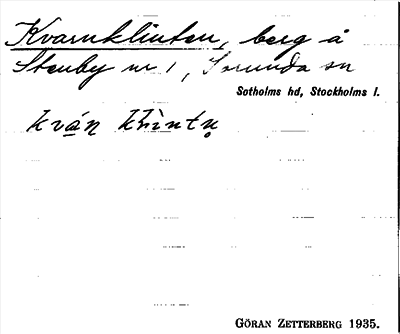 Kvarnklinten, berg å
Stenby nr 1, Sorunda sn
Sotholms hd, Stockholms l.
GÖRAN ZETTERBERG 1935.